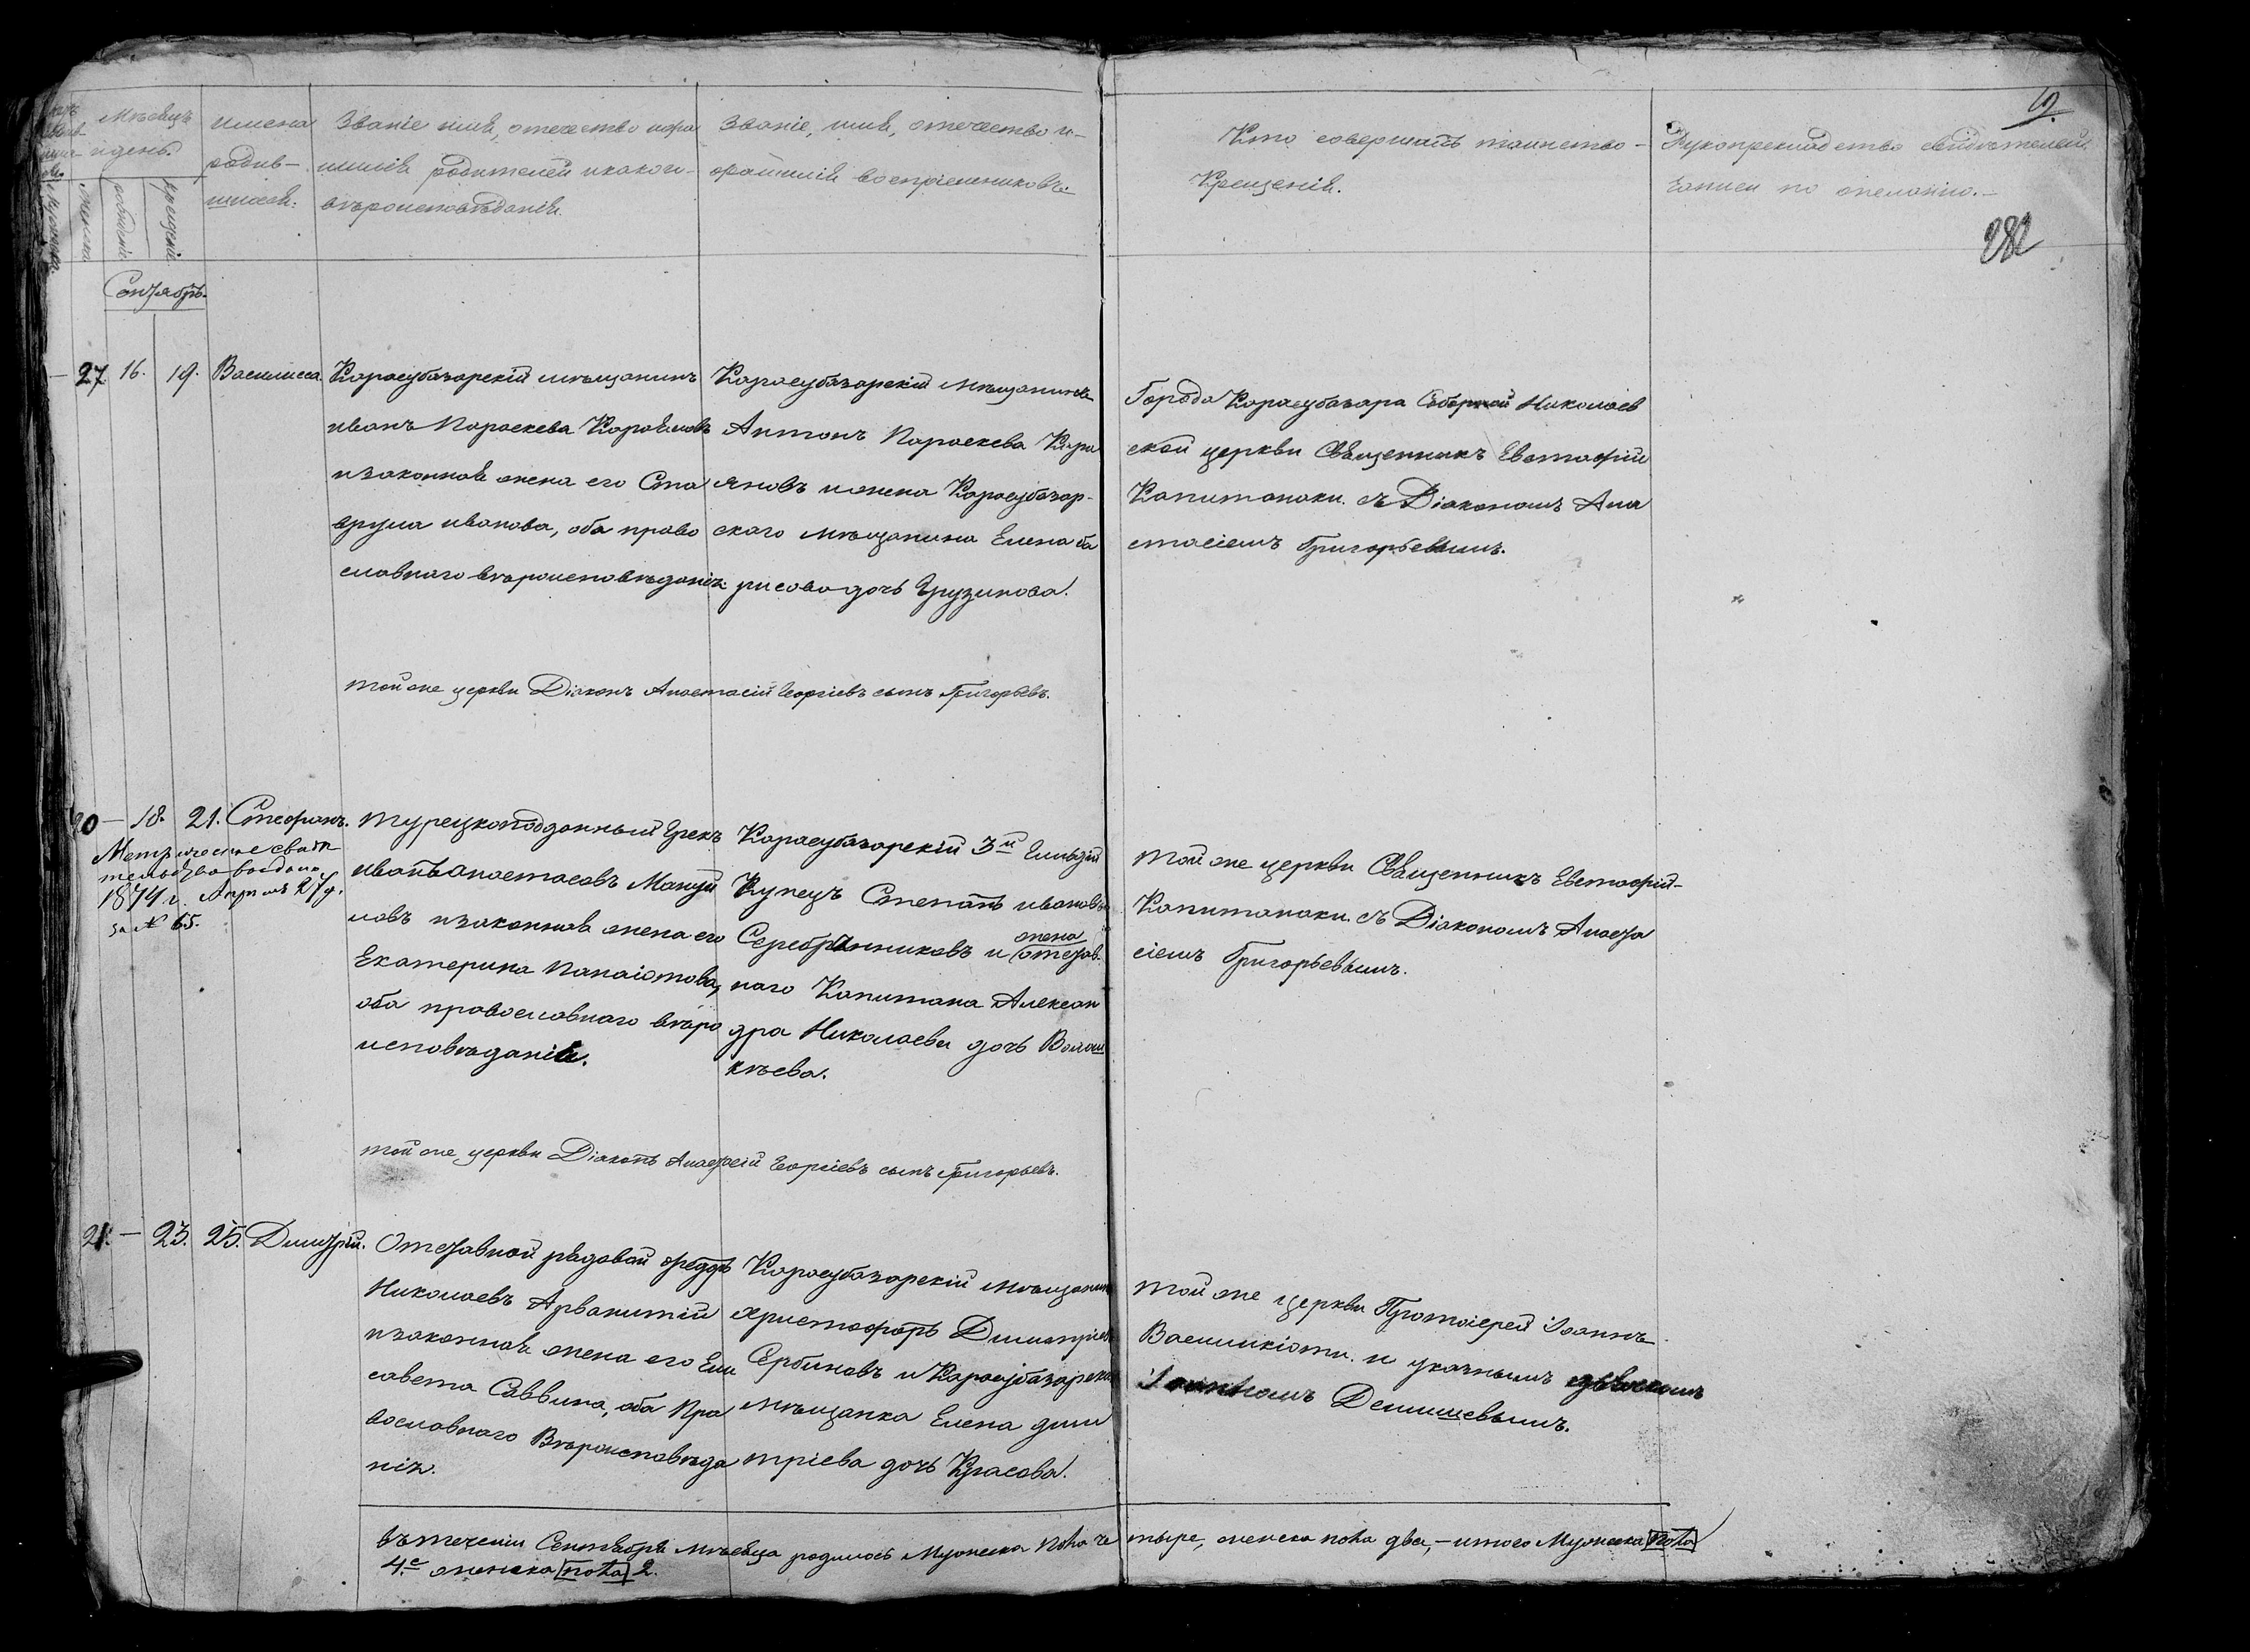 19.
282
Мѣсяцъ
и день.
имена
родив-
шихся.
Званіе имя, отечество и фа
миліи родителей и какого
вѣроисповѣданія.
Званіе, имя, отечество и
фамилія воспріемниковъ.
Кто совершалъ таинство
Крещенія.
Рукоприкладство свидѣтелей
записи по желанію.
Сентябрь.
27. 16. 19. Василисса
Карасубазарскій мѣщанинъ
иванъ Параскева Караяновъ
и законная жена его Ста
врула иванова, оба право
славнаго вѣроисповѣданія.
Карасубазарскій мѣщанинъ
Антонъ Параскева Кара
яновъ и жена Карасубазар-
скаго мѣщанина Елена ба
рисова дочь Грузинова.
Города Карасубазара Соборной Николаев
ской церкви Священникъ Евстафій
Капитанаки. съ Діакономъ Ана
стасіемъ Григорьевымъ.
той же церкви Діаконъ Анастасій Георгіевъ сынъ Григорьевъ.
20 — 18. 21. Стефанъ.
Метрическое свидѣ
тельство выдано
1874 г. Апрѣля 27 д.
за № 65.
турецкоподданный Грекъ
иванъ анастасовъ Мануй
ловъ и законная жена его
Екатерина Панаіотова,
оба православнаго вѣро
исповѣданія.
Карасубазарскій 3й Гильдіи
Купецъ Степанъ ивановъ
Серебрянниковъ и жена отстав.
наго Капитана Алексан
дра Николаева дочь
кѣева.
той же церкви Священникъ Евстафій
Капитанаки. съ Діакономъ Анаста
сіемъ Григорьевымъ.
той же церкви Діаконъ Анастасій Георгіевъ сынъ Григорьевъ.
21. — 23. 25. Димитрій.
Отставной рядовой
Николаевъ Арванитій
и законная жена его Ели
савета Саввина, оба Пра
вославнаго Вѣроисповѣда
нія.
Карасубазарскій мѣщанинъ
христофоръ Димитріевъ
Сербиновъ и Карасубазарская
мѣщанка Елена дими
тріева дочь Красова.
той же церкви Протоіерей Іоаннъ
Василикіоти. и указнымъ дьячкомъ
Демишевымъ.
въ теченіи Сентября мѣсяца родилось Мужеска пола че тыре, женска пола два, — итого Мужеска пола
4.е женска пола 2.